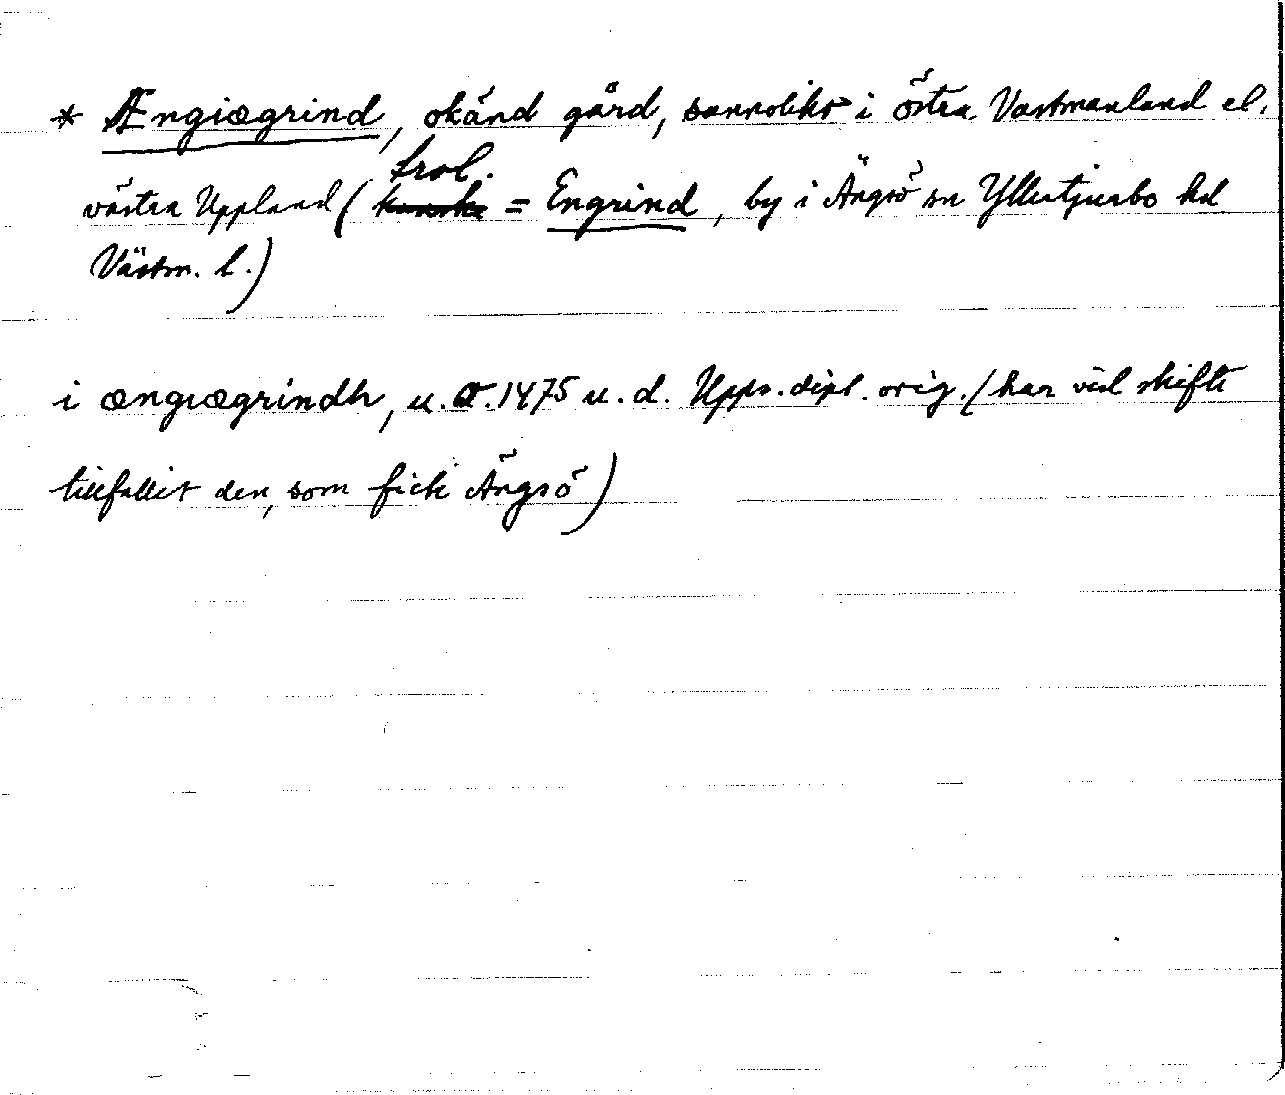 * Ængiægrind, okänd gård, sannolikt i östra Västmanland el.
västra Uppland (trol. = Engrind, by i Ängsö sn Yttertjurbo hd
Västm. l.)
i ængiægrindh, u. o. 1475 u. d. Upps. dipl. orig. (har vid skifte
tillfallit den, som fick Ängsö)